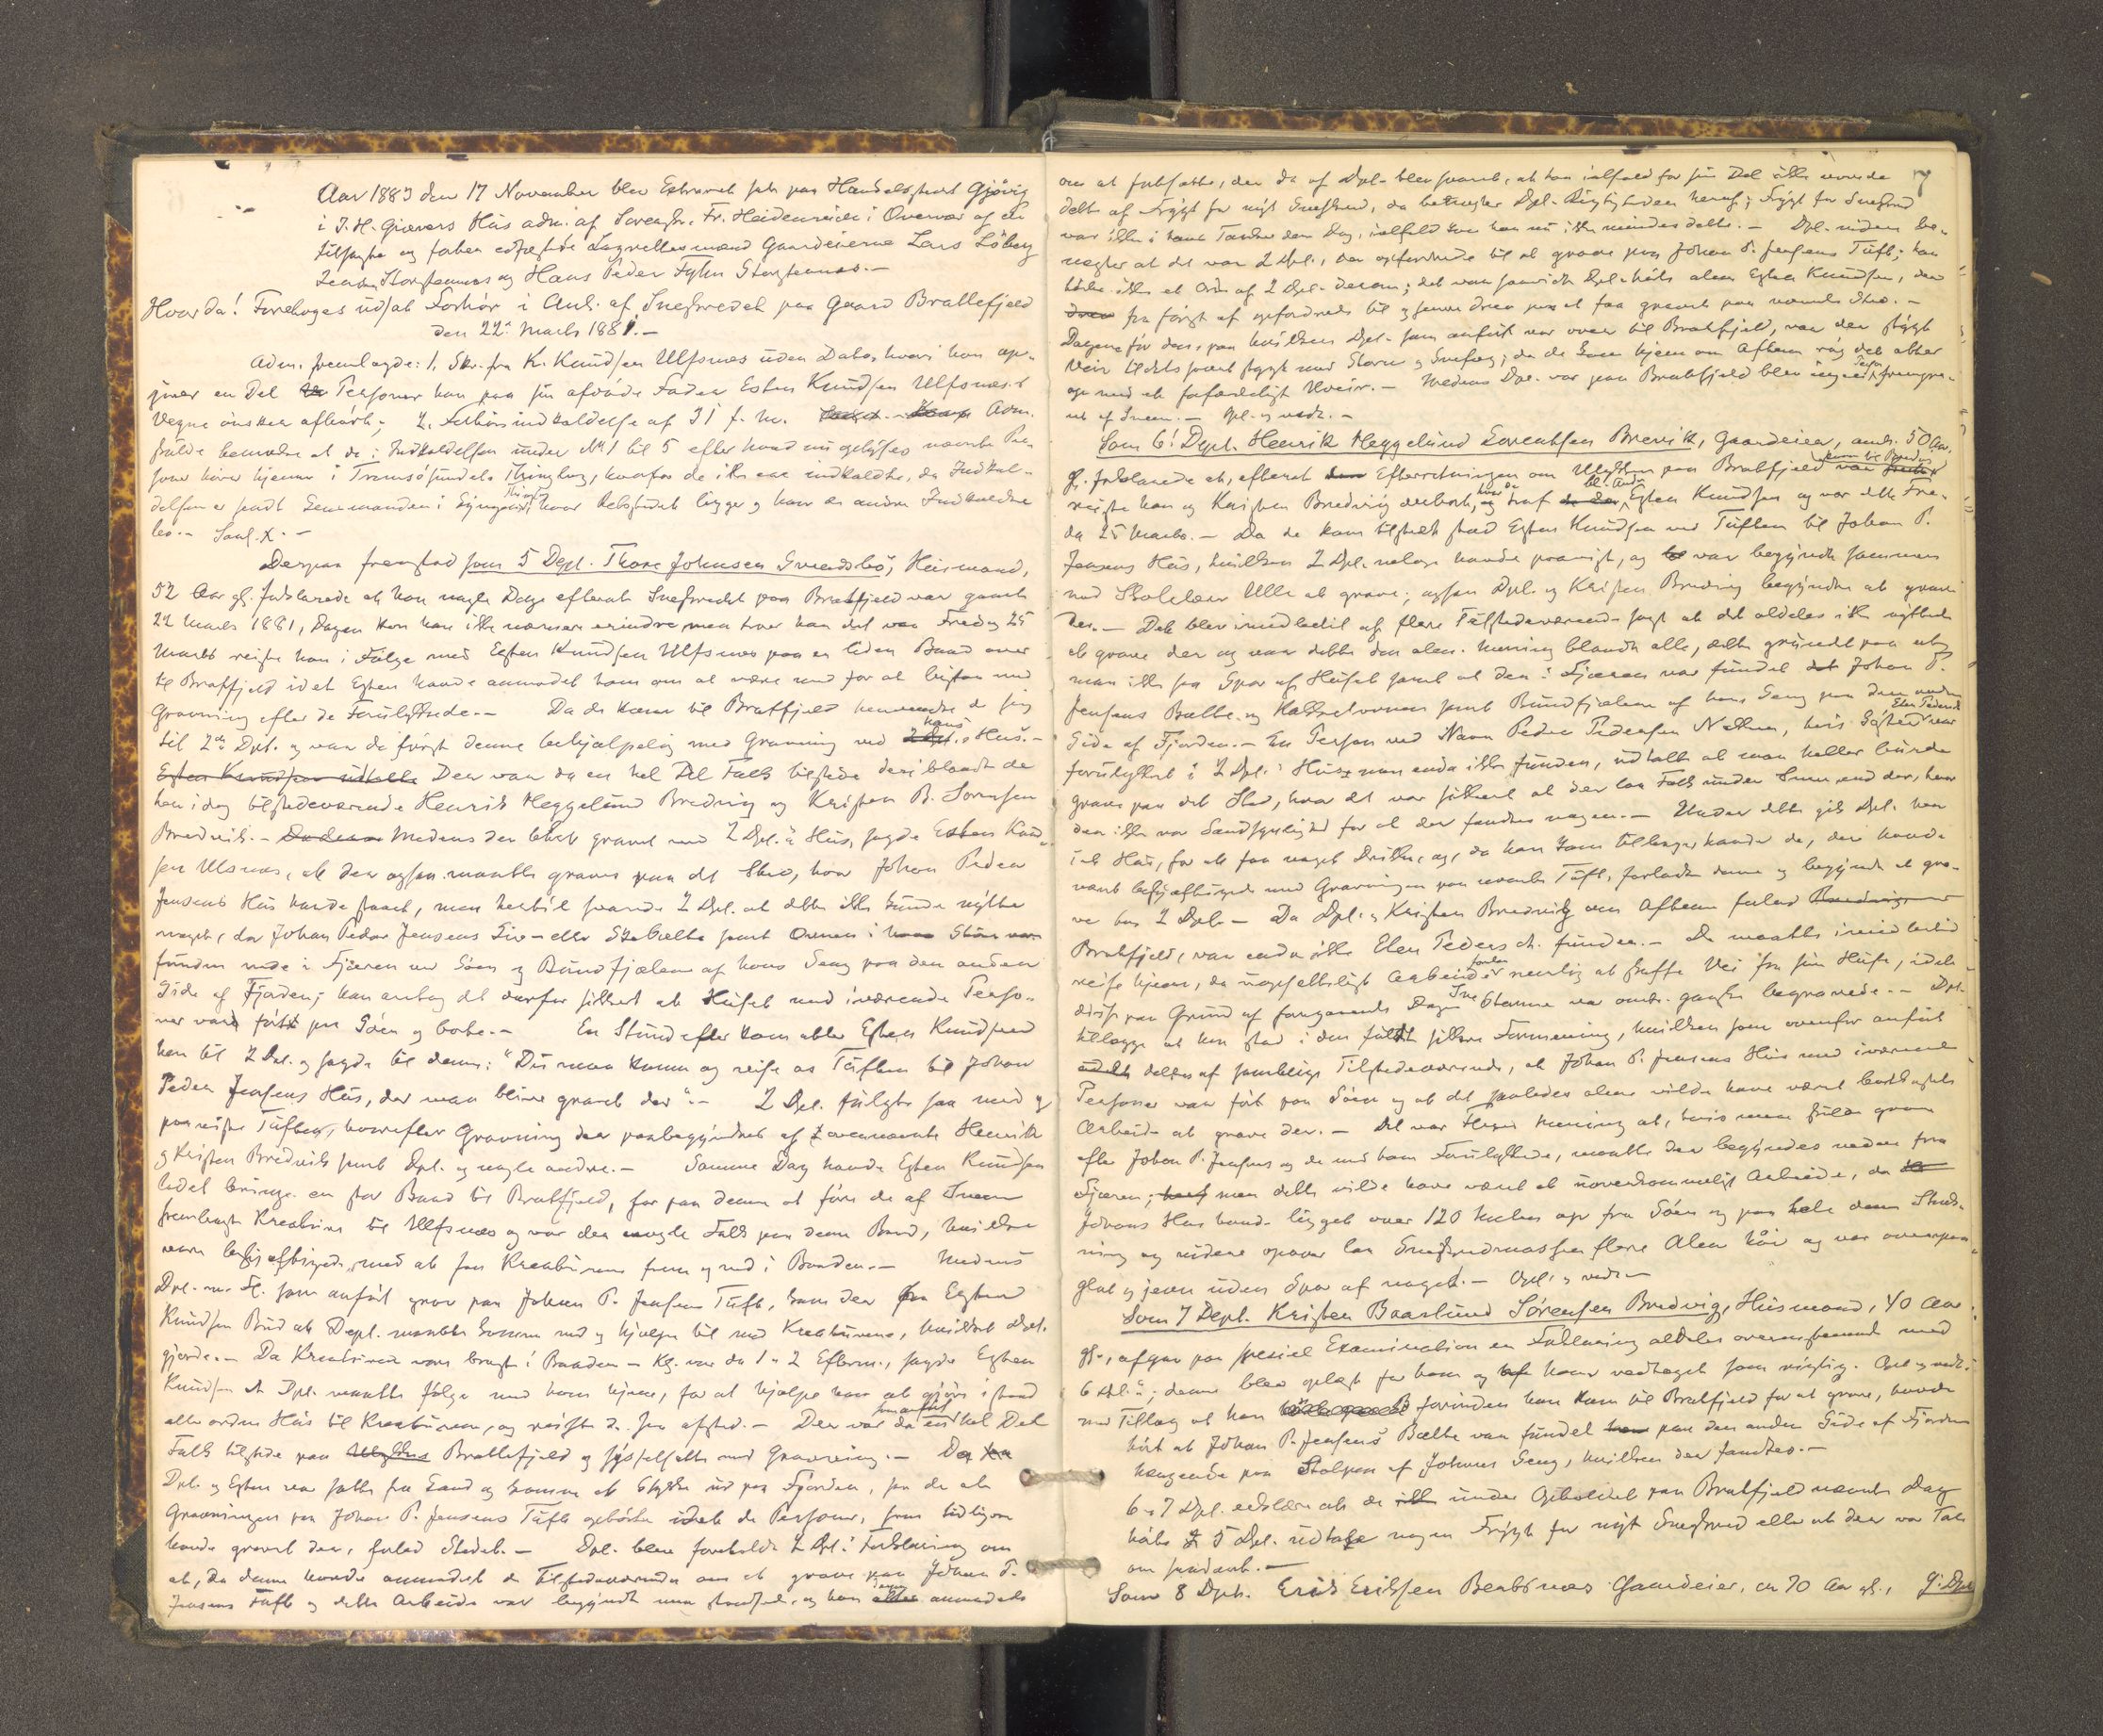 Aar 1883 den 17 November blev Extraret sat paa Handelsstedet Gjövig
i J. H. Giævers Hus adm. af Sorenskr. Fr. Heidenreich i Overvær af de
tilsagte og forhen edfæstede Lagrettesmænd Gaardeierne Lars Löberg
Storstennes og Hans Peder Fyhn Storstennes.-
Hvorda! Foretoges udsat Forhör i Anl. af Sneskredet paa Gaard Brattefjeld
den 22de Marts 1881.-
Adm. fremlagde: 1. Skr. fra K. Knudsen Ulfsnæs uden Dato, hvori han op-
giver en Del Personer han paa sin afdöde Fader Esten Knudsen Ulfsnæs's
Vegne önsker afhört; 2. Forhörsindkaldelse af 31 f. M. Adm.
skulde bemærke at de i Indkaldelsen under No 1 til 5 efter hvad nu oplyses nævnte Per-
soner hörer hjemme i Tromsösundets Thinglag, hvorfor de ikke ere indkaldte, da Indkal-
delsen er sendt Lensmanden i Thingl. hvor Retsstedet ligger og hvor de andre Indkaldte
bo.-
Derpaa fremstod som 5 Dpt. Thore Johnsen Husmand,
52 Aar gl. Forklarede at han nogle Dage efterat Sneskredet paa Bratfjeld var gaaet
22 Marts 1881, Dagen kan han ikke nærmere erindre, men tror han det var Fredag 25
Marts reiste han i Fölge med Esten Knudsen Ulfsnæs paa en liden Baad over
til Bratfjeld idet Esten havde anmodet ham om at være med for at bistaa med
Gravning efter de Forulykkede.- Da de kom til Bratfjeld henvendte de sig
til 2den Dpt. og var da först denne behjælpelig med Gravning ved hans Hus.-
Esten Knudsen udtalte Der var da en hel Del Folk tilstede deriblandt de
her idag tilstedeværende Henrik Heggelund Bredvig og Kristen B. Sörensen
Bredvik.- Medens der blev gravet ved 2 Dpt.s Hus, sagde Esten Knud-
sen Ulfsnæs, at der ogsaa maatte graves paa det Sted, hvor Johan Peder
Jensens Hus havde staaet, men hertil svarede 2 Dpt. at dette ikke kunde nytte
noget, da Johan Peder Jensens Liv- eller Skobælte samt Ovnen
funden nede i Fjæren ved Söen og Bundfjælene af hans Seng paa den anden
Side af Fjorden; han antog det derfor sikkert at Huset med iværende Perso-
ner var fört paa Söen og borte.- En Stund efter kom atter Esten Knudsen
hen til 2 Dpt. og sagde til denne: "Du maa komme og vise os Tuften til Johan
Peder Jensens Hus, der maa blive gravet der".- 2 Dpt. fulgte saa med og
paaviste Tuften, hvorefter Gravning der paabegyndtes af ovennævnte Henrik
og Kristen Bredvik samt Dpt. og nogle andre.- Samme Dag havde Esten Knudsen
ladet bringe en stor Baad til Bratfjeld, for paa denne at före de af Sneen
frembragte Kreaturer til Ulfsnæs og var der nogle Folk paa denne Baad, hvilke
vare beskjæftigede med at faa Kreaturene frem og ned i Baaden.- Medens
Dpt. m. fl. som anfört grov paa Johan P. Jensens Tuft, kom der fra Esten
Knudsen Bud at Dept. maatte komme ned og hjælpe til med Kreaturene, hvilket Dpt.
gjorde.- Da Kreaturene vare bragt i Baaden - Kl. var da 1 a 2 Efterm., sagde Esten
Knudsen at Dpt. maatte fölge med ham hjem, for at hjælpe ham at gjöre istand
eller ordne Hus til Kreaturene, og reiste de saa afsted.- Der var da som anfört en hel Del
Folk tilstede paa Brattefjeld og sysselsatte med Gravning.- Da
Dpt. og Esten var satte fra Land og komne et Stykke ud paa Fjorden, saa de at
Gravningen paa Johan P. Jensens Tuft ophörte idet de Personer, som tidligere
havde gravet der, forlod Stedet.- Dpt. blev foreholdt 2 Dpt.s Forklaring om
at, da denne havde anmodet de Tilstedeværende om at grave paa Johan P.
Jensens Tuft og dette Arbeide var begyndt men standset, og han anmodede
7
om at fortsætte, der da af Dpt. blev svaret, at han ialfald for sin Del ikke vovede
dette af Frygt for nyt Sneskred, da benægter Dpt. Rigtigheden heraf; Frygt for Sneskred
var ikke i hans Tanker den Dag, ialfald kan han nu ikke mindes dette.- Dpt. videre be-
nægter at det var 2 Dpt., der opfordrede til at grave paa Johan P. Jensens Tuft; han
hörte ikke et Ord af 2 Dpt. derom; det var saavidt Dpt. hörte alene Esten Knudsen, der
saa först af opfordrede til og senere drev paa at faa gravet paa nævnte Sted.-
Dagene för den, paa hvilken Dpt. som anfört var over til Bratfjeld, var der stygt
Veir tildels svært stygt med Storm og Snefog; da de kom hjem om Aftenen rög det atter
op med et forfærdeligt Uveir.- Medens Dpt. var paa Bratfjeld blev ingen Person fremgra-
vet af Sneen.- Opl. og vedt.-
Som 6! Dept. Henrik Heggelund Lorentsen Brevik, Gaardeier, omtr. 50 Aar
gl. forklarede at, efterat Efterretningen om Ulykken paa Bratfjeld kom til Bredvig
reiste han og Kristen Bredvig derbort, og traf bl. Andre Esten Knudsen og var dette Fre-
dag 25 Marts.- Da de kom tilstede stod Esten Knudsen ved Tuften til Johan P.
Jensens Hus, hvilken 2 Dpt. netop havde paavist, og var begyndt sammen
med Skolelærer Ulle at grave; ogsaa Dpt. og Kristen Bredvig begyndte at grave
der.- Det blev imidlertid af flere Tilstedeværende sagt at det aldeles ikke nyttede
at grave der og var dette den alm. Mening blandt alle, dette grundet paa at
man ikke saa Spor af Huset samt at der i Fjæren var fundet Johan P.
Jensens Bælte og Kakkelovnen samt Bundfjælene af hans Seng paa den anden
Side af Fjorden.- En Person ved Navn Peder Pedersen hvis Söster Elen Pedersd. var
forulykket i 2 Dpt.s Hus men enda ikke funden, udtalte at man heller burde
grave paa det Sted, hvor det var sikkert at der laa Folk under Sneen, end der, hvor
der ikke var Sandsynlighed for at der fandtes nogen.- Under dette gik Dpt. hen
i et Hus, for at faa noget Drikke, og, da han kom tilbage, havde de, der havde
været beskjæftigede med Gravningen paa nævnte Tuft, forladt denne og begyndt at gra-
ve hos 2 Dpt.- Da Dpt. og Kristen Bredvig om Aftenen forlod
Bratfjeld, var enda ikke Elen Pedersd. funden.- De maatte imidlertid
reise hjem, da uopsætteligt Arbeide nemlig at skaffe Vei fra sin Huse, idet
disse paa Grund af foregaaende Dages Snestorme var omtr. ganske begravede.- Dpt.
tillægge at han stod i den fuldt sikre Formening, hvilken som ovenfor anfört
deltes af samtlige Tilstedeværende, at Johan P. Jensens Hus med iværende
Personer var fört paa Söen og at det saaledes alene vilde have været bortkastet
Arbeide at grave der.- Det var Mening at, hvis man skulde grave
efter Johan P. Jensens og de med ham Forulykkede, maatte der begyndes nedenfra
Fjæren; men dette vilde have været et uoverkommeligt Arbeide, da
Johans Hus havde ligget over 120 Meter op fra Söen og paa hele denne Stræk-
ning og videre opover laa Sneskredmassen flere Alen höi og var ovenpaa
glat og jevn uden Spor af noget.- Opl. og vedt.-
Som 7 Dept. Kristen Baarlund Sörensen Bredvig, Husmand, 40 Aar
gl., afgav paa speciel Examination en Forklaring aldeles overensstemmende med
6 Dpt.s; denne blev oplæst for ham og af ham vedtaget som rigtig. Opl. og vedt.
med Tillæg at han forinden han kom til Bratfjeld for at grave, havde
hört at Johan P. Jensens Bælte var fundet paa den anden Side af Fjorden
hængende paa Stolpen af Johans Seng, hvilken der fandtes.-
6 & 7 Dpt. erklære at de under Opholdet paa Bratfjeld nævnte Dag
hörte 5 Dpt. udtale nogen Frygt for nyt Sneskred eller at der var Tale
om saadant.-
Som 8 Dpt. Erik Eriksen Gaardeier, ca 70 Aar gl., 9! Dpt